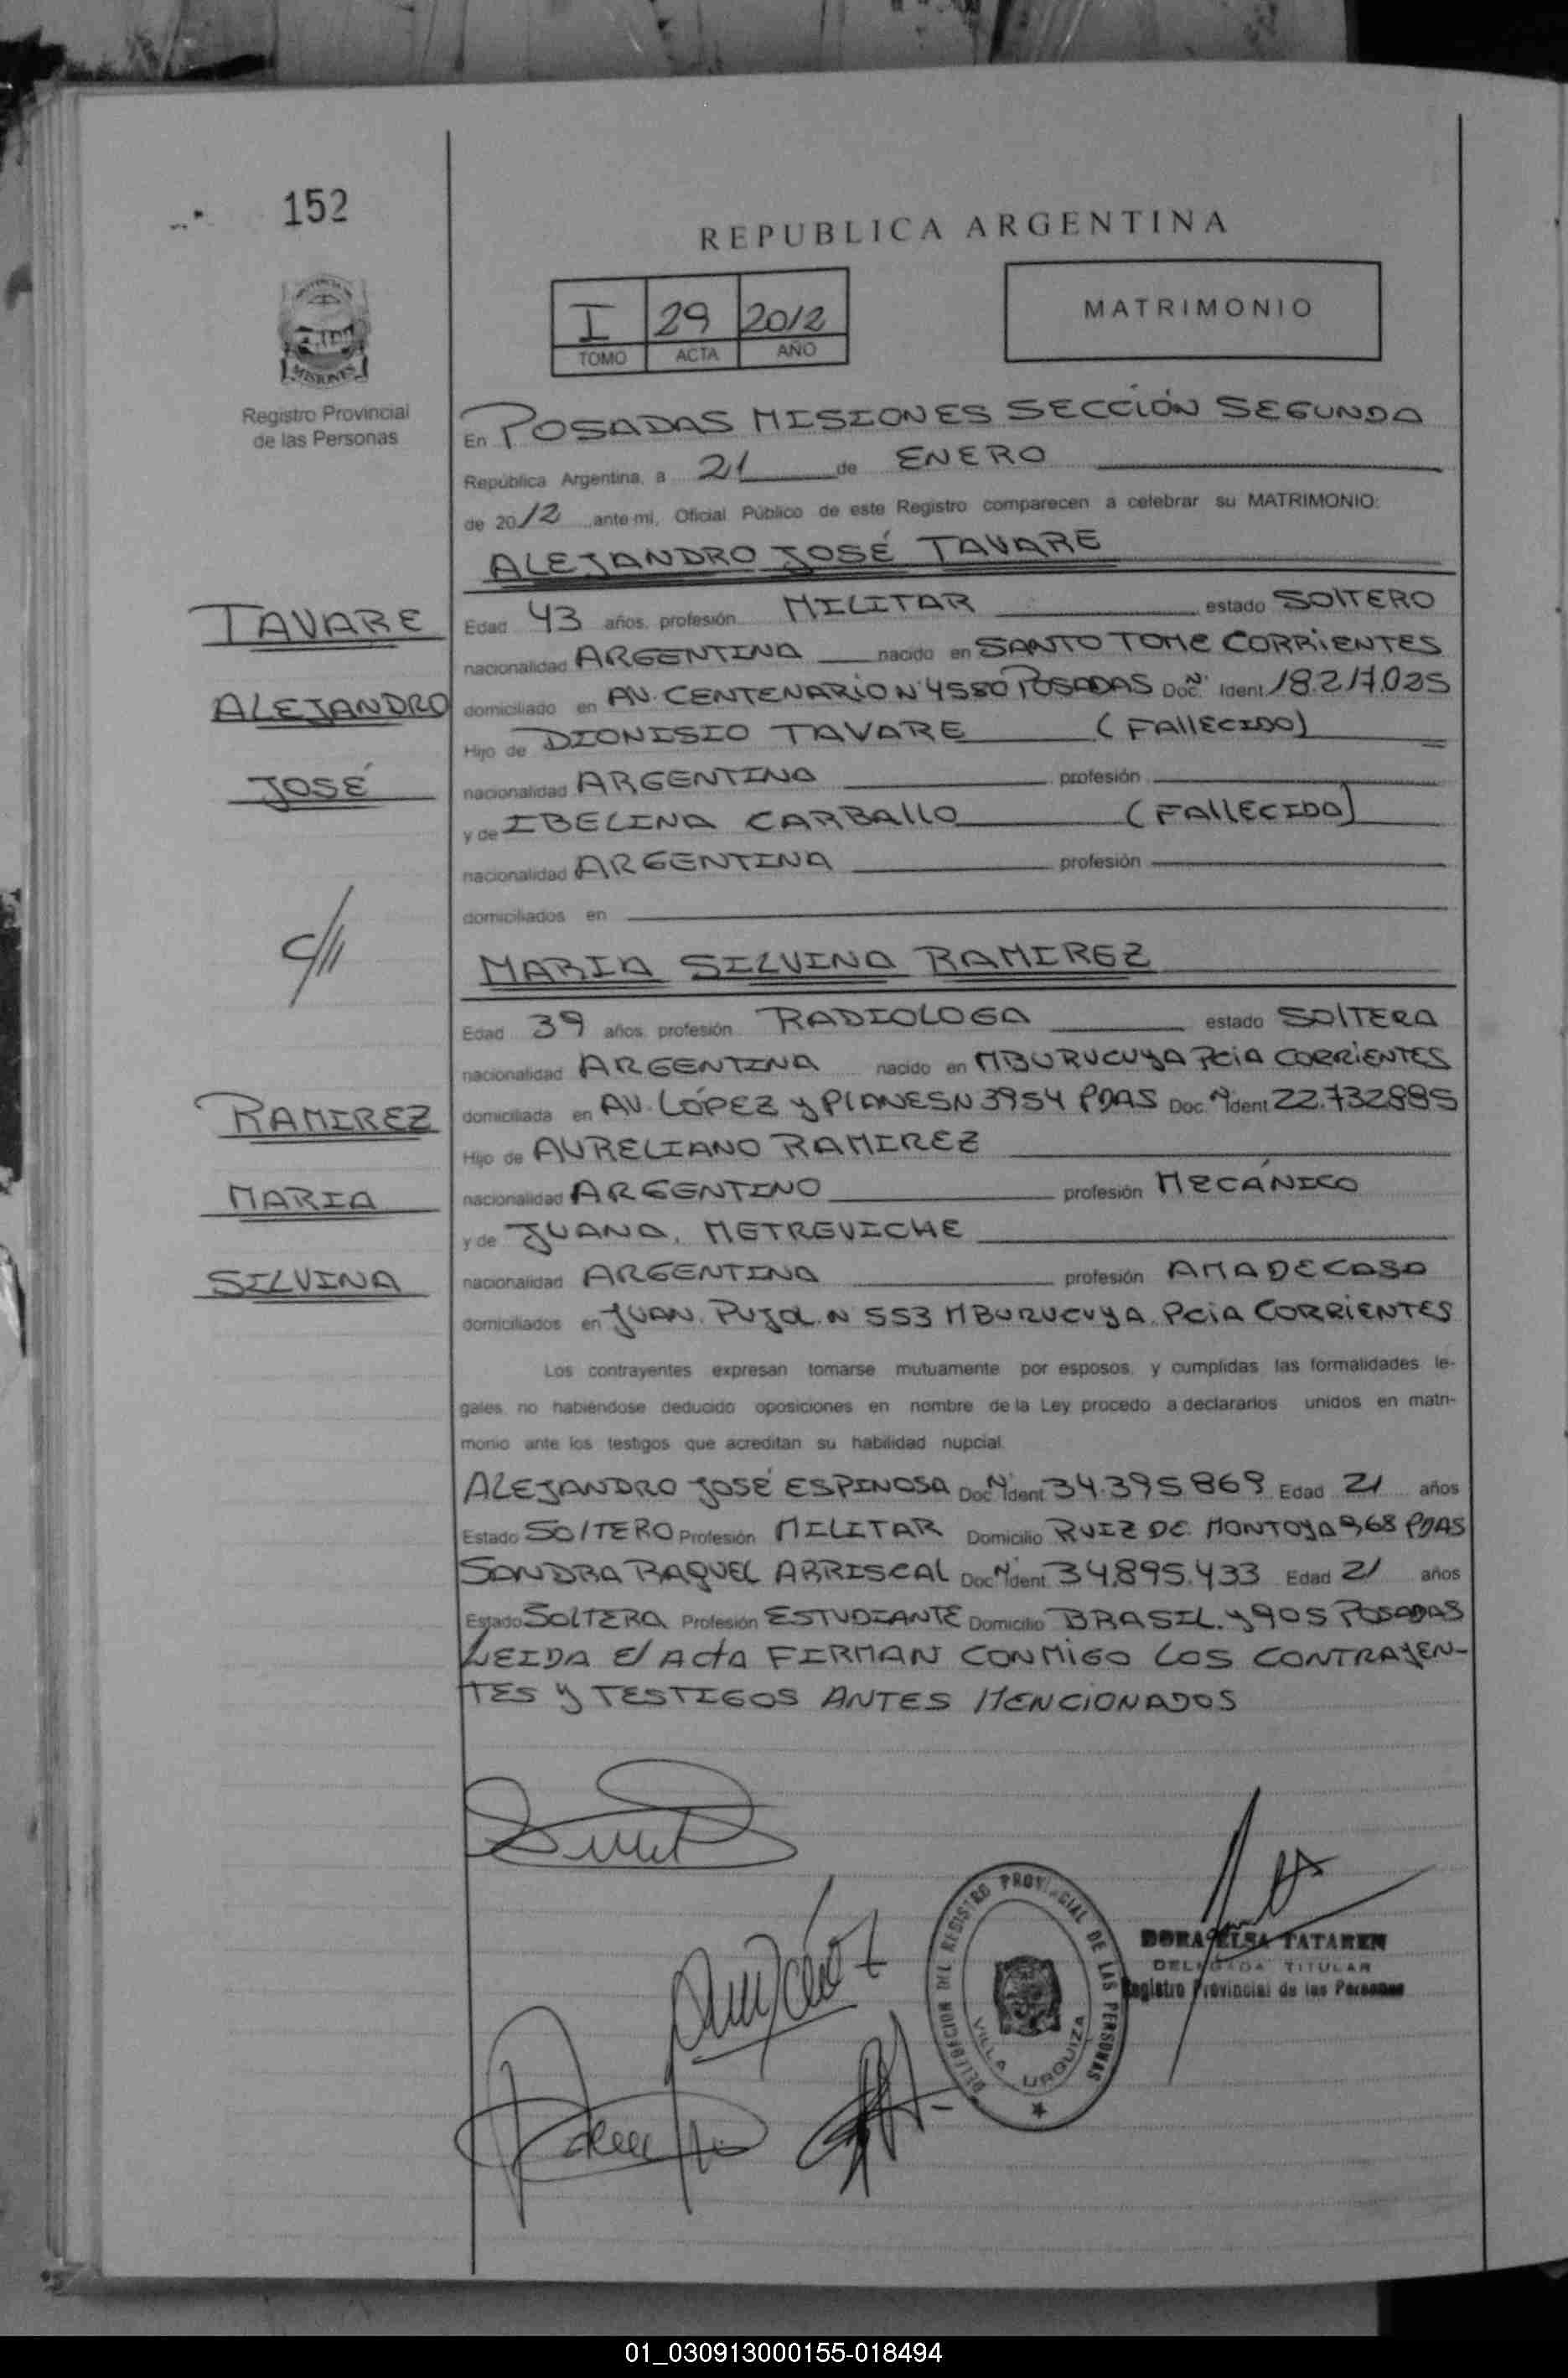 152
REPUBLICA ARGENTINA
I 29 2012
TOMO ACTA AÑO
MATRIMONIO
MISIONES
Registro Provincial
de las Personas
En POSADAS MISIONES SECCIÓN SEGUNDA
República Argentina, a 21 de ENERO
de 2012 ante mi, Oficial Público de este Registro comparecen a celebrar su MATRIMONIO:
ALEJANDRO JOSÉ TAVARE
TAVARE
Edad 43 años, profesión MILITAR estado SOLTERO
nacionalidad ARGENTINA nacido en SANTO TOME CORRIENTES
ALEJANDRO
domiciliado en AV. CENTENARIO N° 4580 POSADAS Doc. N° Ident. 18.217.025
Hijo de DIONISIO TAVARE (FALLECIDO)
JOSÉ
nacionalidad ARGENTINA profesión
y de IBELINA CARBALLO (FALLECIDA)
nacionalidad ARGENTINA profesión
domiciliados en
C///
MARIA SILVINA RAMIREZ
Edad 39 años, profesión RADIOLOGA estado SOLTERA
nacionalidad ARGENTINA nacido en MBURUCUYA PCIA CORRIENTES
RAMIREZ
domiciliada en AV. LÓPEZ y PLANES N 3954 PDAS Doc. N° Ident. 22.732885
Hijo de AURELIANO RAMIREZ
MARIA
nacionalidad ARGENTINO profesión MECÁNICO
y de JUANA, METREVICHE
SILVINA
nacionalidad ARGENTINA profesión AMA DE CASA
domiciliados en JUAN. PUJOL. N 553 MBURUCUYA. PCIA CORRIENTES
Los contrayentes expresan tomarse mutuamente por esposos, y cumplidas las formalidades le-
gales, no habiéndose deducido oposiciones en nombre de la Ley procedo a declararlos unidos en matri-
monio ante los testigos que acreditan su habilidad nupcial.
ALEJANDRO JOSÉ ESPINOSA Doc. N° Ident. 34.395.869 Edad 21 años
Estado SOLTERO Profesión MILITAR Domicilio RUIZ DE MONTOYA 968 PDAS
SANDRA RAQUEL ARRISCAL Doc. N° Ident. 34.895.433 Edad 21 años
Estado SOLTERA Profesión ESTUDIANTE Domicilio BRASIL. y 905 POSADAS
LEIDA El ActA FIRMAN CONMIGO LOS CONTRAYEN-
TES y TESTIGOS ANTES MENCIONADOS
DELEGACION DEL REGISTRO PROVINCIAL DE LAS PERSONAS
VILLA URQUIZA
DORA ELSA TATAREN
DELEGADA TITULAR
Registro Provincial de las Personas
01_030913000155-018494